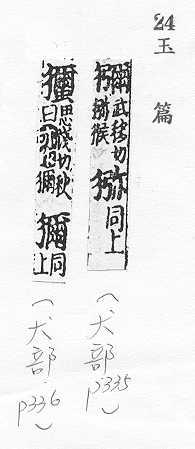 24
玉篇
獼武移切獼猴猕同上
(犬部 P335)
思淺切秋曰獮同上
(犬部 P336)